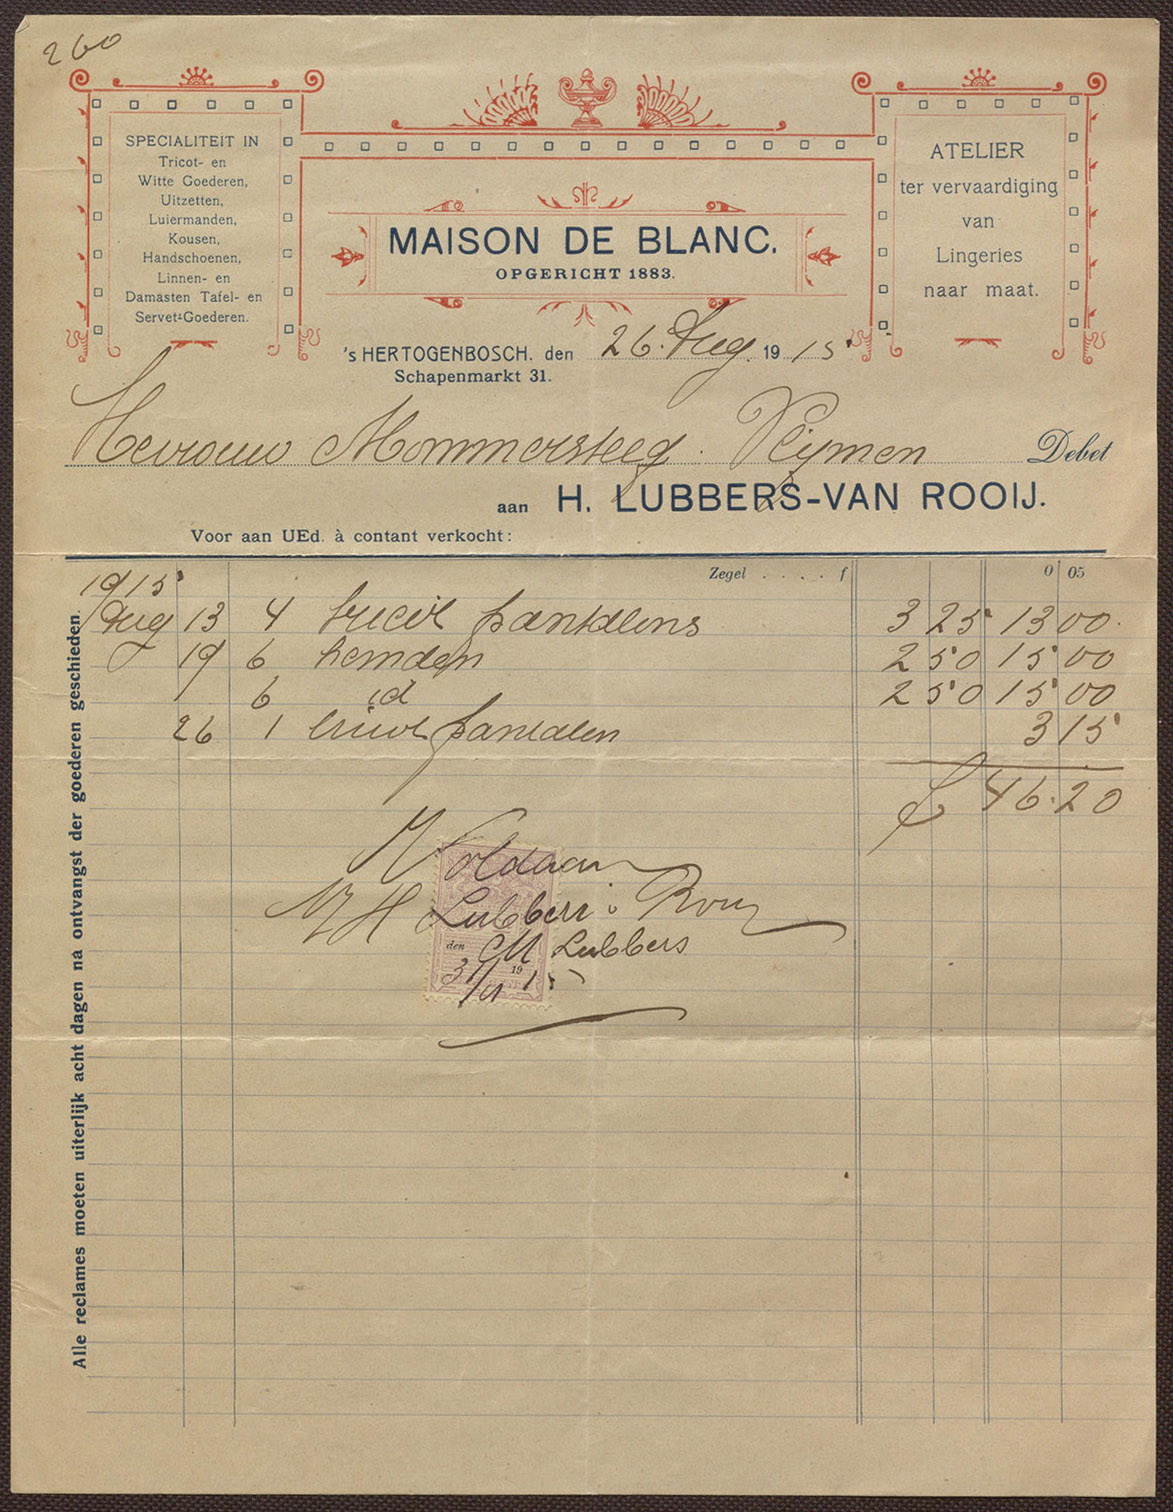 260
SPECIALITEIT IN
Tricot- en
Witte Goederen,
Uitzetten,
Luiermanden,
Kousen,
Handschoenen,
Linnen- en
Damasten Tafel- en
Servet-Goederen.
MAISON DE BLANC.
OPGERICHT 1883.
ATELIER
ter vervaardiging
van
Lingeries
naar maat.
's HERTOGENBOSCH. den 26. Aug. 1915
Schapenmarkt 31.
Mevrouw Mommersteeg. Debet
aan H. LUBBERS-VAN ROOIJ.
Voor aan UEd. à contant verkocht:
Zegel . . . . f 0 05
1915
Aug 13 4 tricot pantalons 3 25 13 00
19 6 hemden 2 50 15 00
6 id 2 50 15 00
26 1 tricot pantalon 3 15
f 46.20
Voldaan
H Lubbers v Rooy
den CM Lubbers
19 15
Alle reclames moeten uiterlijk acht dagen na ontvangst der goederen geschieden.